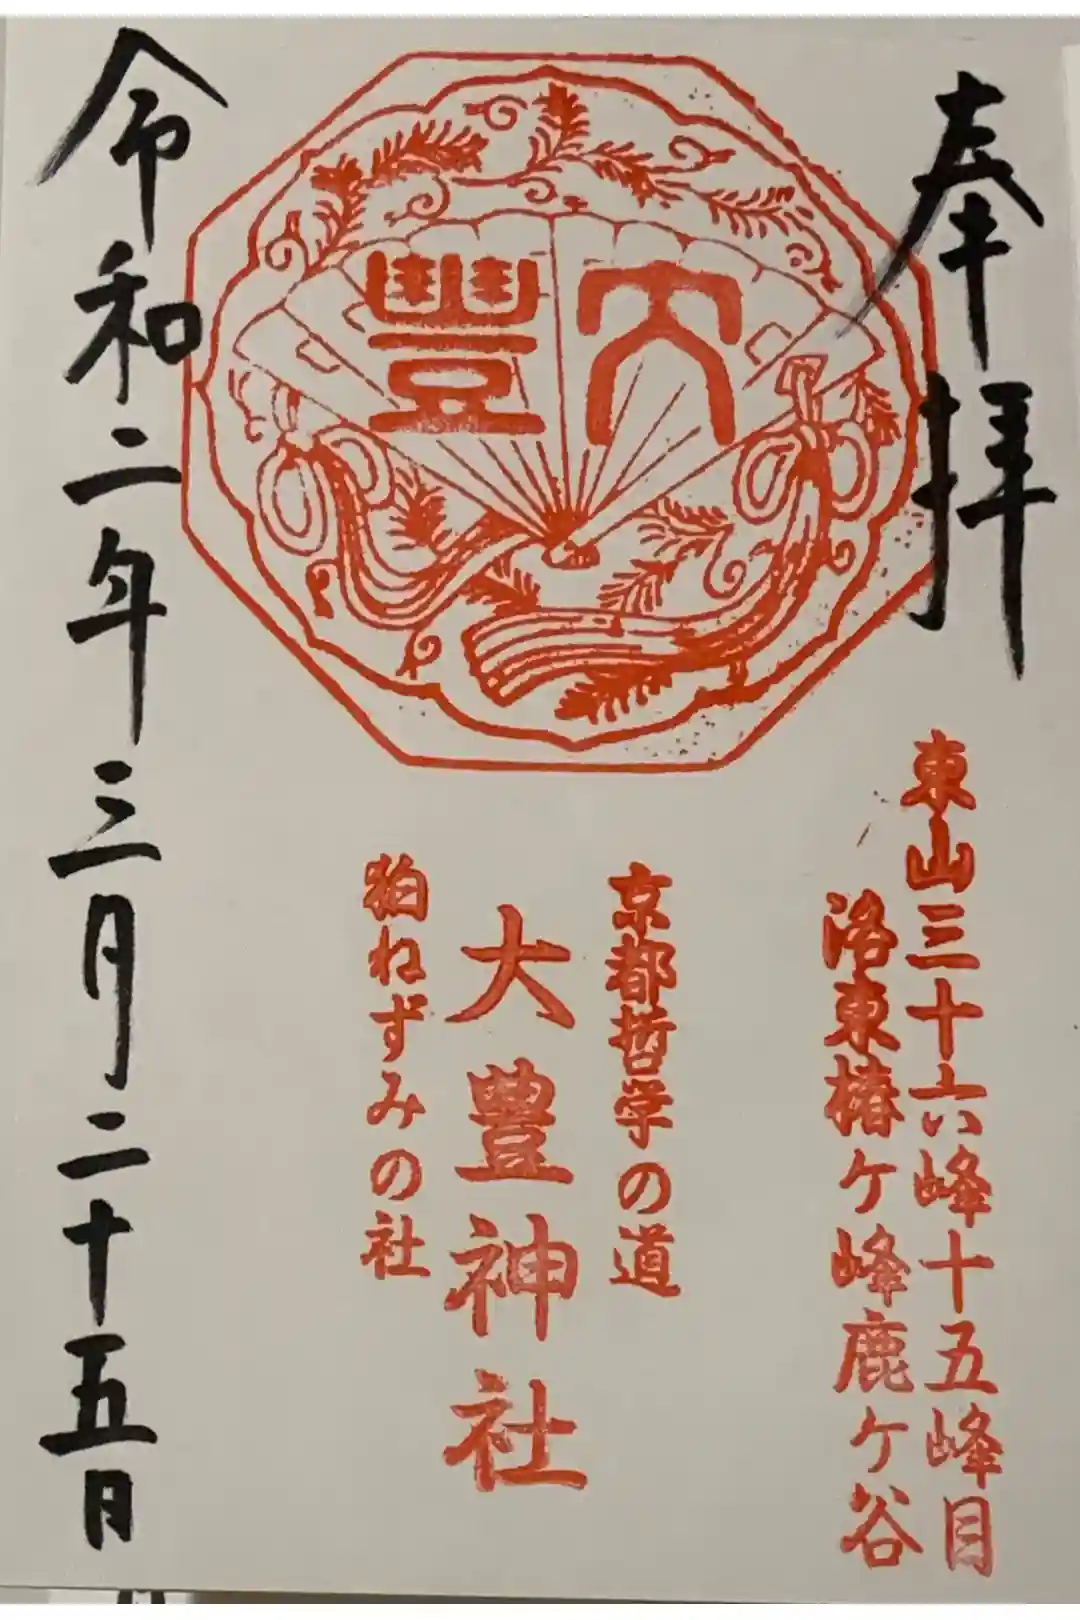 奉拝
東山三十六峰十五峰目
洛東椿ケ峰鹿ケ谷
大豊
京都哲学の道
大豊神社
狛ねずみの社
令和二年三月二十五日